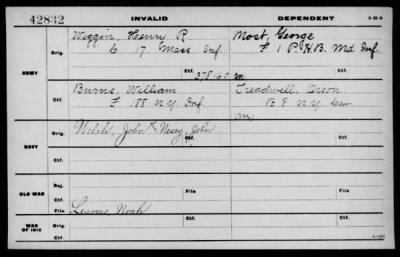 42832 INVALID DEPENDENT 3-25-6
Wiggin, Henry R. Most, George
Orig. C 17 Mass Inf. F 1 P.H.B. Md Inf.
ARMY 378160 m
Burns, William Treadwell, Orson
Ctf. F 188 N.Y Inf. B 8 N.Y Cav
m
Welsh, John Neary, John
Orig.
NAVY Ctf.
Ctf.
OLD WAR Rej. File Ctf.
Ctf. File
File Leavens, Noah
WAR OF 1812 Orig. Ctf.
Ctf.